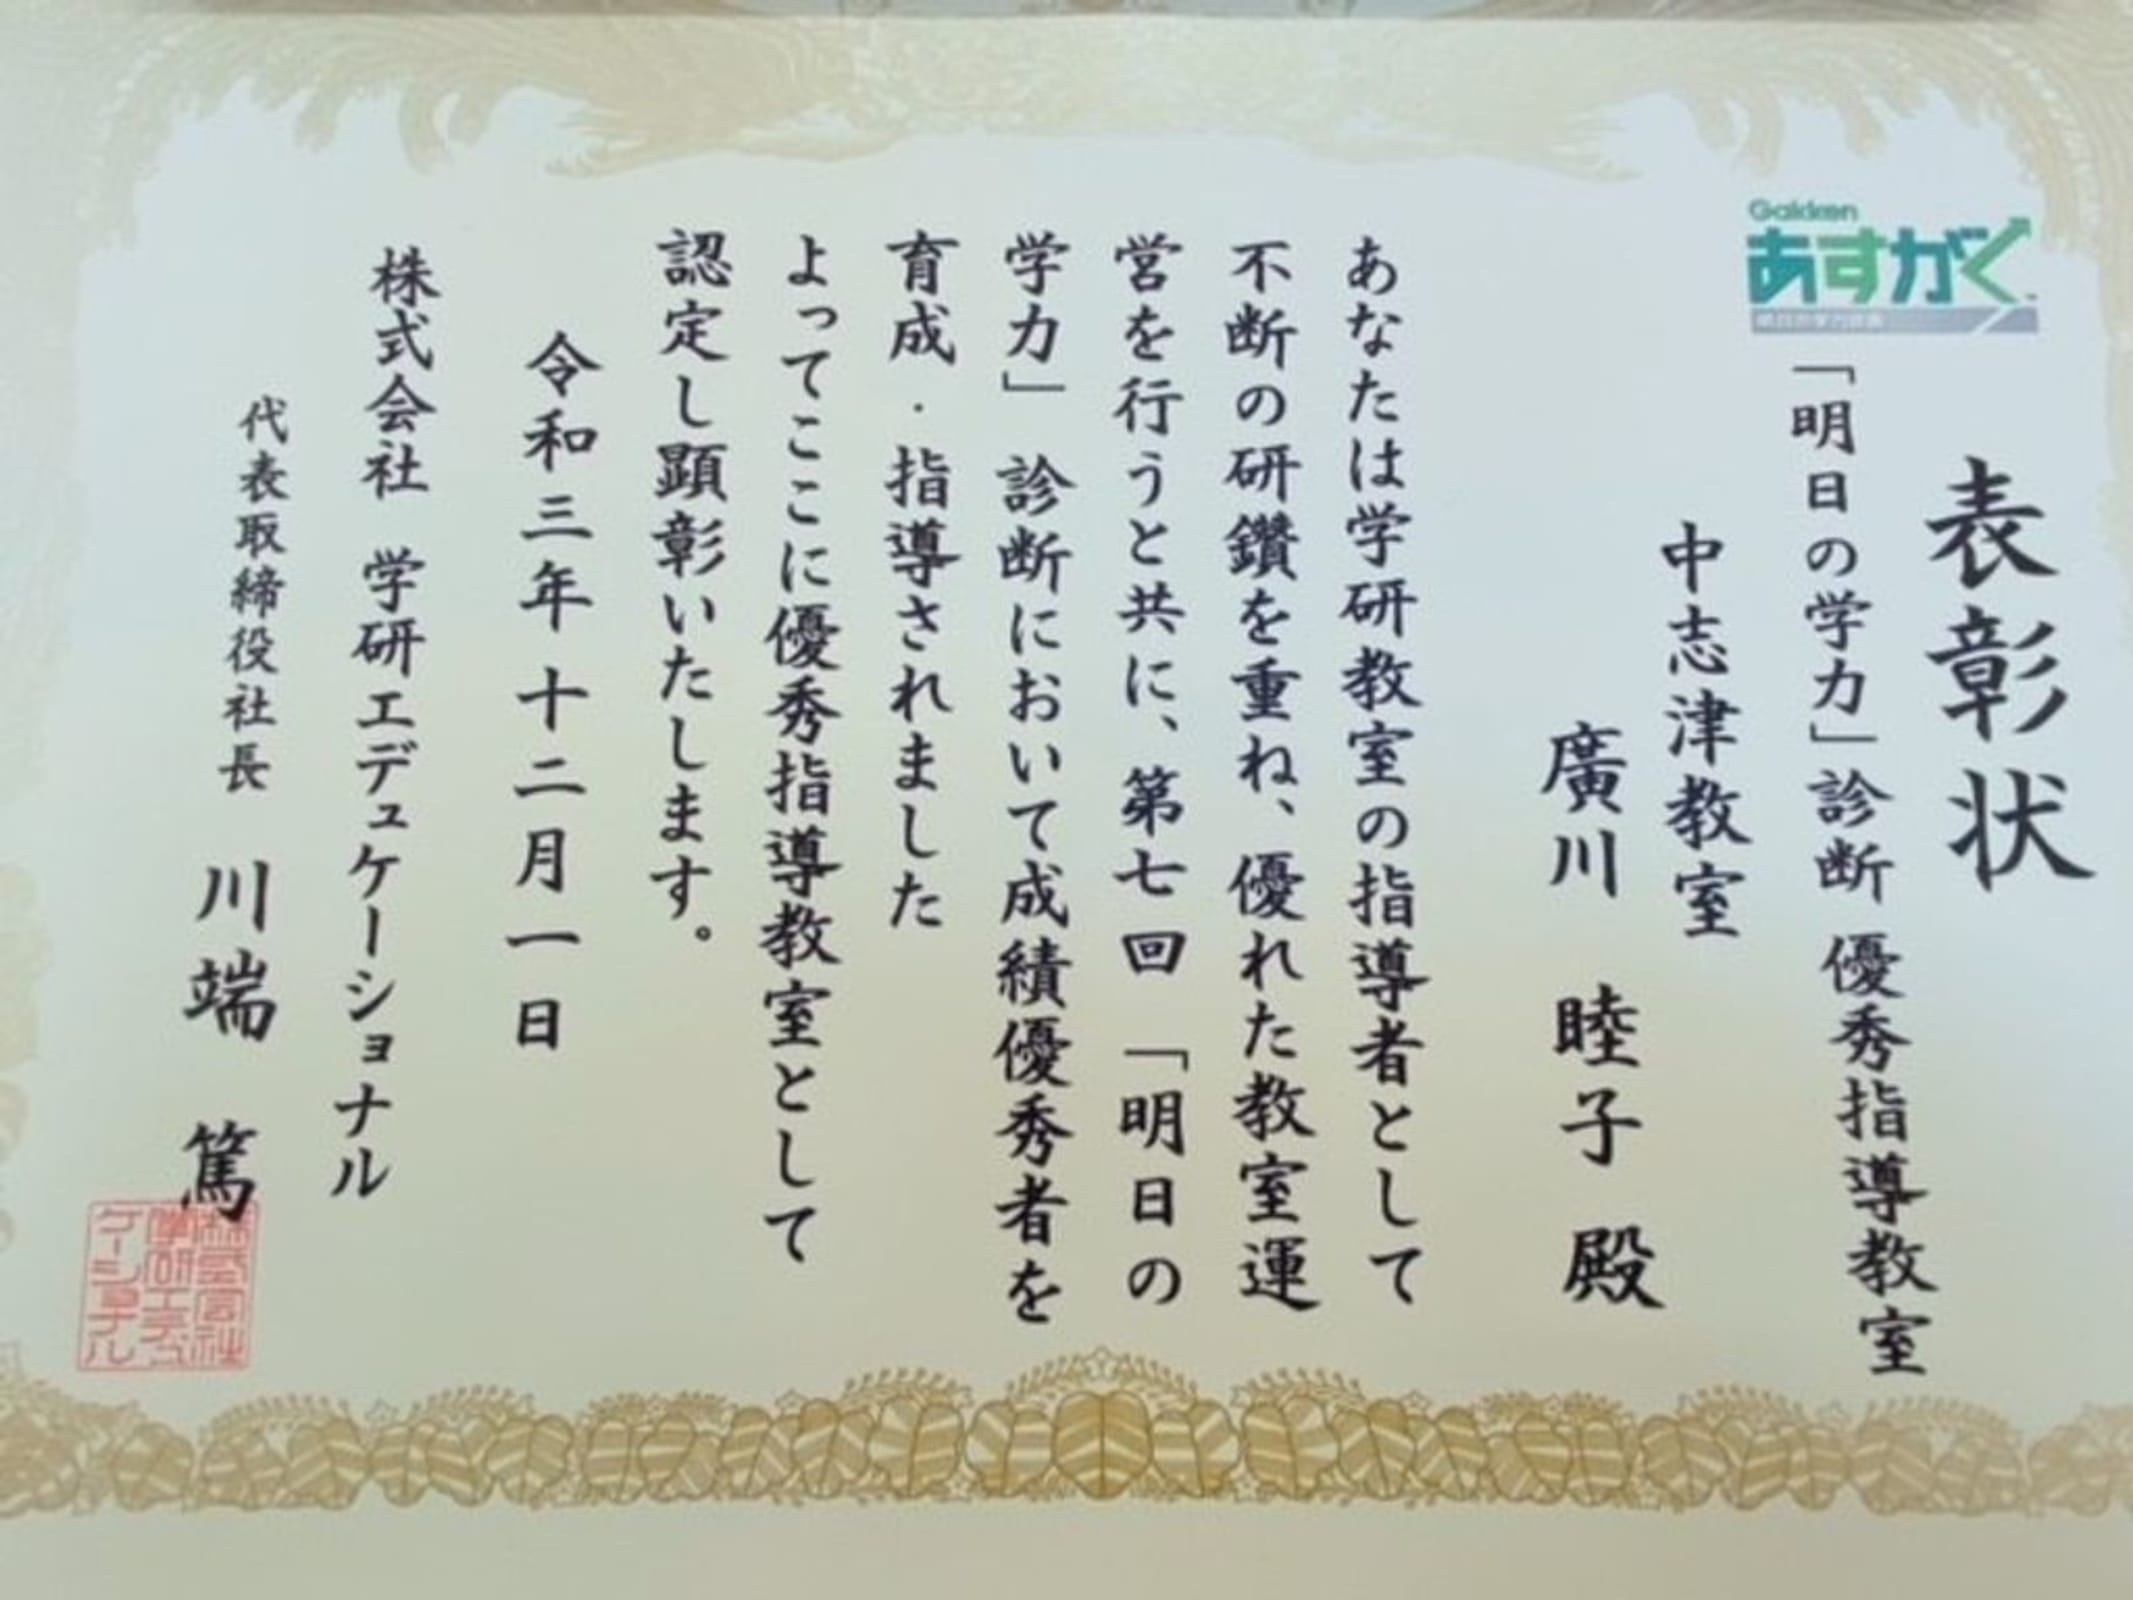 Gakken
あすがく
表彰状
「明日の学力」診断 優秀指導教室
中志津教室
廣川 睦子 殿
あなたは学研教室の指導者として
不断の研鑽を重ね、優れた教室運
営を行うと共に、第七回「明日の
学力」診断において成績優秀者を
育成・指導されました
よってここに優秀指導教室として
認定し顕彰いたします。
令和三年十二月一日
株式会社 学研エデュケーショナル
代表取締役社長 川端 篤
株式会社
学研エデュ
ケーショナル